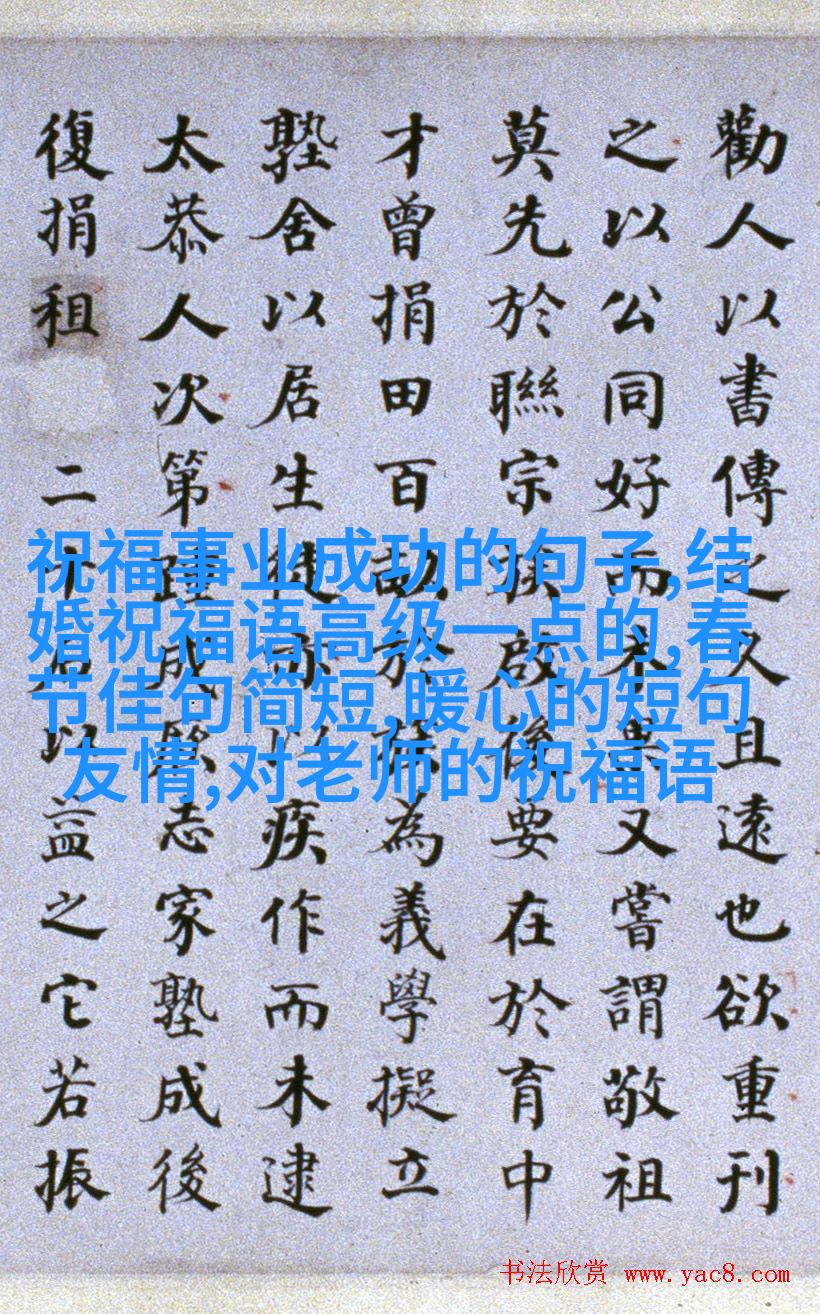 勸人以書傳之久且遠也欲重刊
之以公同好而不果又嘗謂敬祖
莫先於聯宗族啟後要在於育中
才曾捐田百畝於為義學擬立
塾舍以居生徒亦以疾作而未逮
太恭人次第踵成志家塾成後
復捐租二十石以益之它若振
祝福事业成功的句子,结
婚祝福语高级一点的,春
节佳句简短,暖心的短句
友情,对老师的祝福语
书法欣赏 www.yac8.com